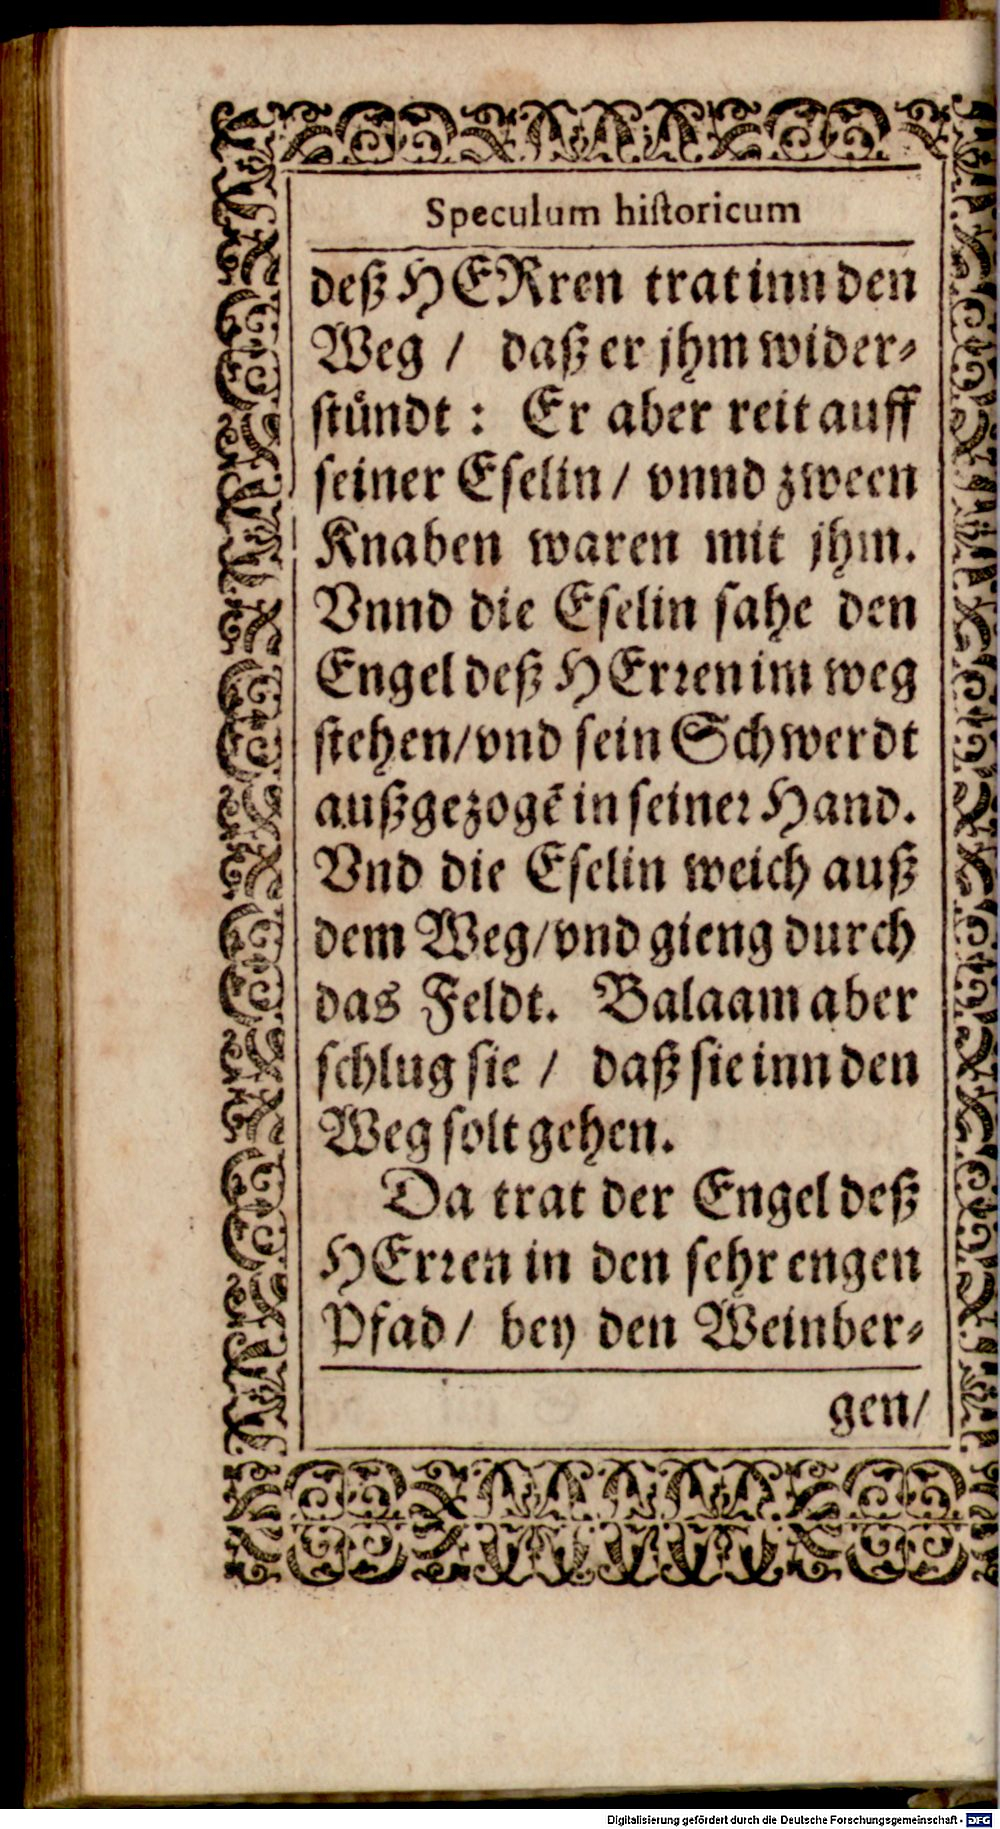 Speculum hiſtoricum
deß HERren trat inn den
Weg / daß er jhm wider⸗
ſtuͤndt : Er aber reit auff
ſeiner Eſelin / vnnd zween
Knaben waren mit jhm.
Vnnd die Eſelin ſahe den
Engel deß HErꝛen im weg
ſtehen/vnd ſein Schwerdt
außgezogẽ in ſeineꝛ Hand.
Vnd die Eſelin weich auß
dem Weg/vnd gieng durch
das Feldt. Balaam aber
ſchlug ſie / daß ſie inn den
Weg ſolt gehen.
Da trat der Engel deß
HErꝛen in den ſehr engen
Pfad / bey den Weinber⸗
gen/
Digitalisierung gefördert durch die Deutsche Forschungsgemeinschaft - DFG